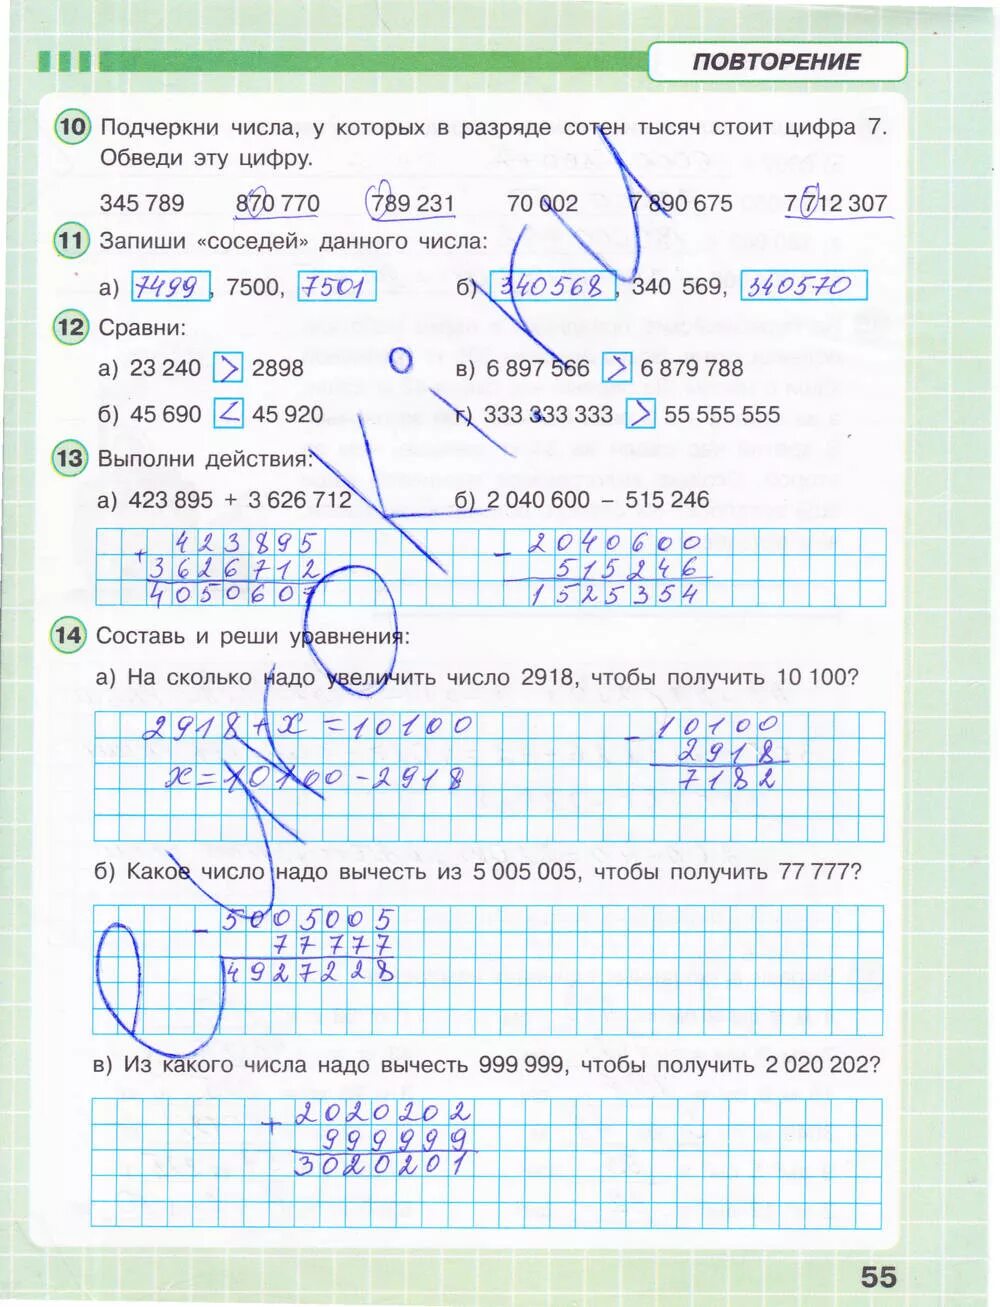 ПОВТОРЕНИЕ
10 Подчеркни числа, у которых в разряде сотен тысяч стоит цифра 7.
Обведи эту цифру.
345 789 870 770 789 231 70 002 7 890 675 7 712 307
11 Запиши «соседей» данного числа:
а) 7499, 7500, 7501 б) 340568, 340 569, 340570
12 Сравни:
а) 23 240 > 2898 в) 6 897 566 > 6 879 788
б) 45 690 < 45 920 г) 333 333 333 > 55 555 555
13 Выполни действия:
а) 423 895 + 3 626 712 б) 2 040 600 – 515 246
+ 423895 – 2040600
3626712 515246
4050607 1525354
14 Составь и реши уравнения:
а) На сколько надо увеличить число 2918, чтобы получить 10 100?
2918 + x = 10100 – 10100
2918
x = 10100 – 2918 7182
б) Какое число надо вычесть из 5 005 005, чтобы получить 77 777?
– 5005005
77777
4927228
в) Из какого числа надо вычесть 999 999, чтобы получить 2 020 202?
+ 2020202
999999
3020201
55